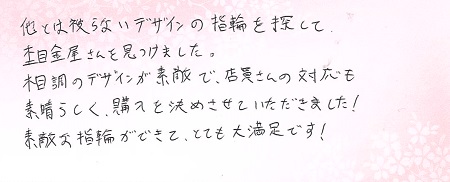 他とは被らないデザインの指輪を探して、
杢目金屋さんを見つけました。
木目調のデザインが素敵で、店員さんの対応も
素晴らしく、購入を決めさせていただきました!
素敵な指輪ができて、とても大満足です!